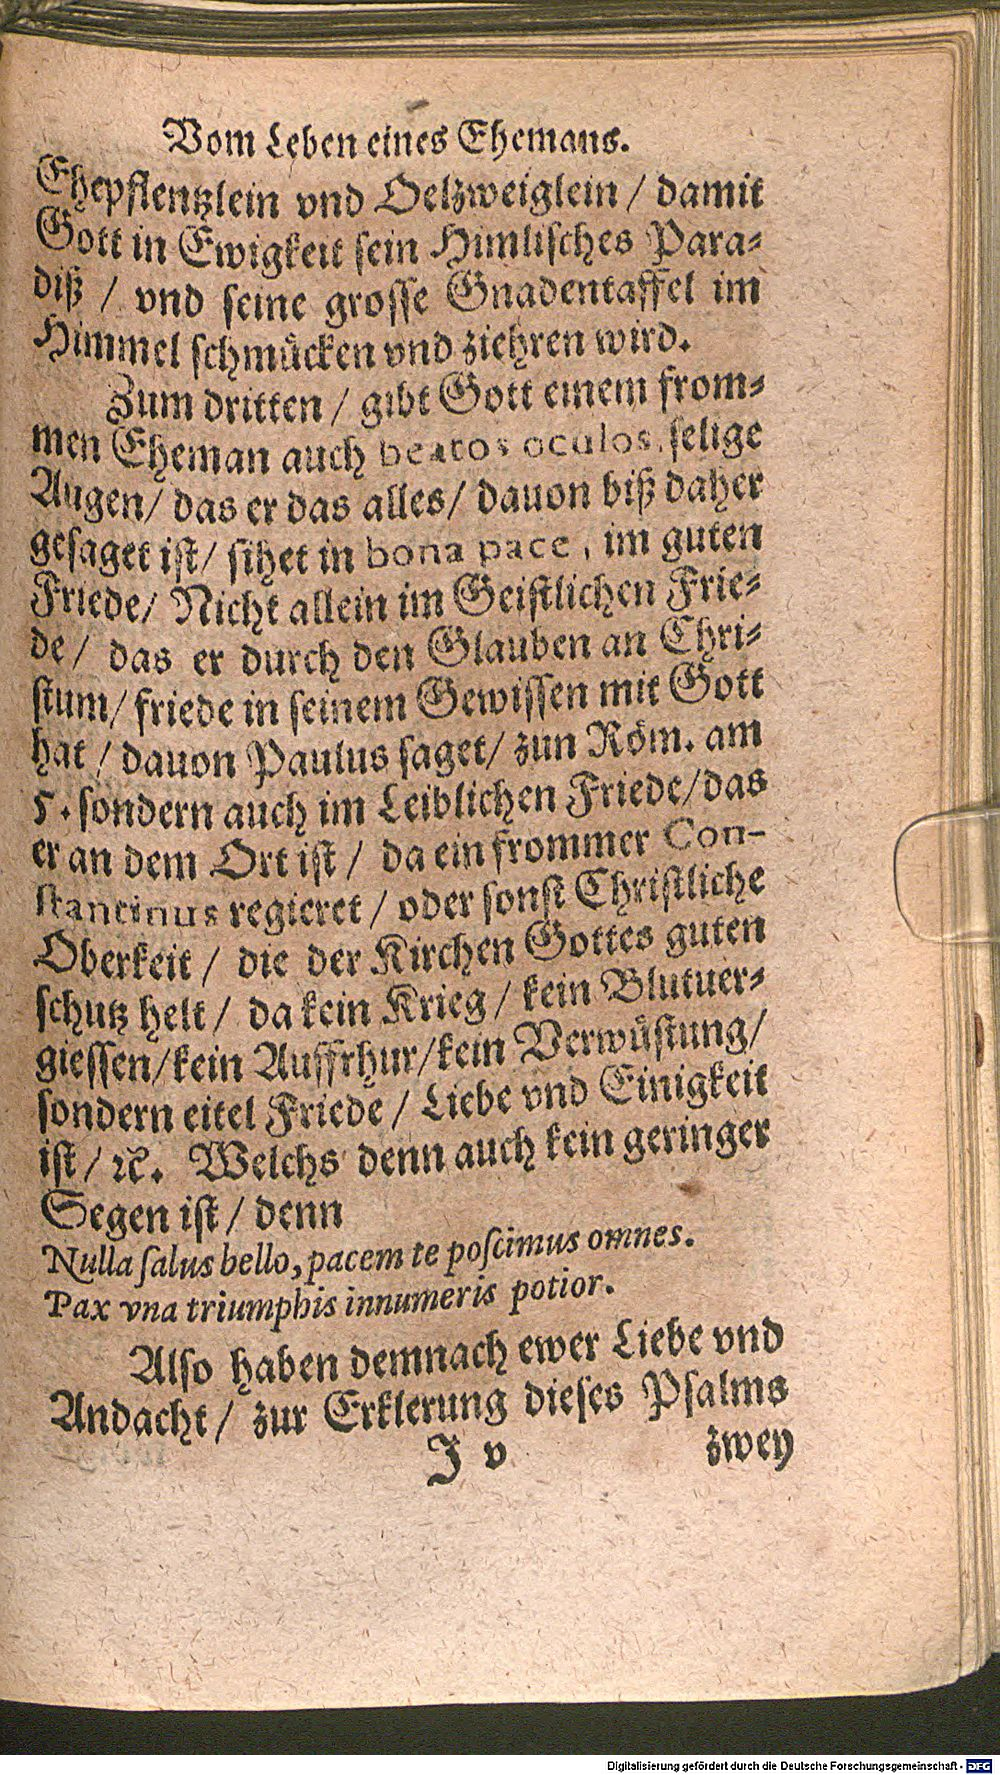 Vom Leben eines Ehemans.
Ehepflentzlein vnd Oelzweiglein / damit
Gott in Ewigkeit sein Himlisches Para-
diß / vnd seine grosse Gnadentaffel im
Himmel schmücken vnd ziehren wird.
Zum dritten / gibt Gott einem from-
men Eheman auch beatos oculos, selige
Augen / das er das alles / dauon biß daher
gesaget ist / sihet in bona pace, im guten
Friede / Nicht allein im Geistlichen Frie-
de / das er durch den Glauben an Chri-
stum / friede in seinem Gewissen mit Gott
hat / dauon Paulus saget / zun Röm. am
5. sondern auch im Leiblichen Friede / das
er an dem Ort ist / da ein frommer Con-
stantinus regieret / oder sonst Christliche
Oberkeit / die der Kirchen Gottes guten
schutz helt / da kein Krieg / kein Blutuer-
giessen / kein Auffrhur / kein Verwüstung /
sondern eitel Friede / Liebe vnd Einigkeit
ist / ꝛc. Welchs denn auch kein geringer
Segen ist / denn
Nulla salus bello, pacem te poscimus omnes.
Pax vna triumphis innumeris potior.
Also haben demnach ewer Liebe vnd
Andacht / zur Erklerung dieses Psalms
J v zwey
Digitalisierung gefördert durch die Deutsche Forschungsgemeinschaft - DFG